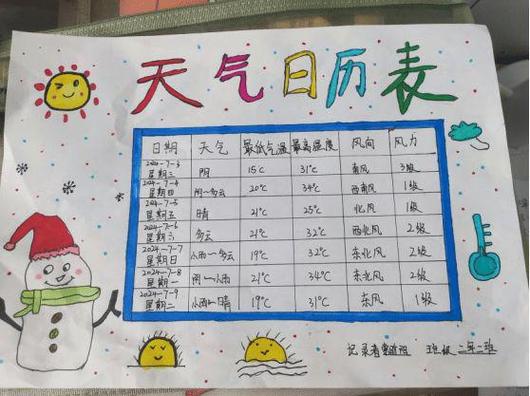 天气日历表
日期 天气 最低气温 最高温度 风向 风力
2024-7-3 星期三 阴 15℃ 31℃ 南风 3级
2024-7-4 星期四 阴~多云 20℃ 34℃ 西南风 1级
2024-7-5 星期五 晴 21℃ 25℃ 北风 1级
2024-7-6 星期六 多云 21℃ 32℃ 西北风 2级
2024-7-7 星期日 小雨~多云 19℃ 32℃ 东北风 2级
2024-7-8 星期一 阴~小雨 21℃ 34℃ 东北风 2级
2024-7-9 星期二 小雨~晴 19℃ 31℃ 东风 1级
记录者 班级 二年二班